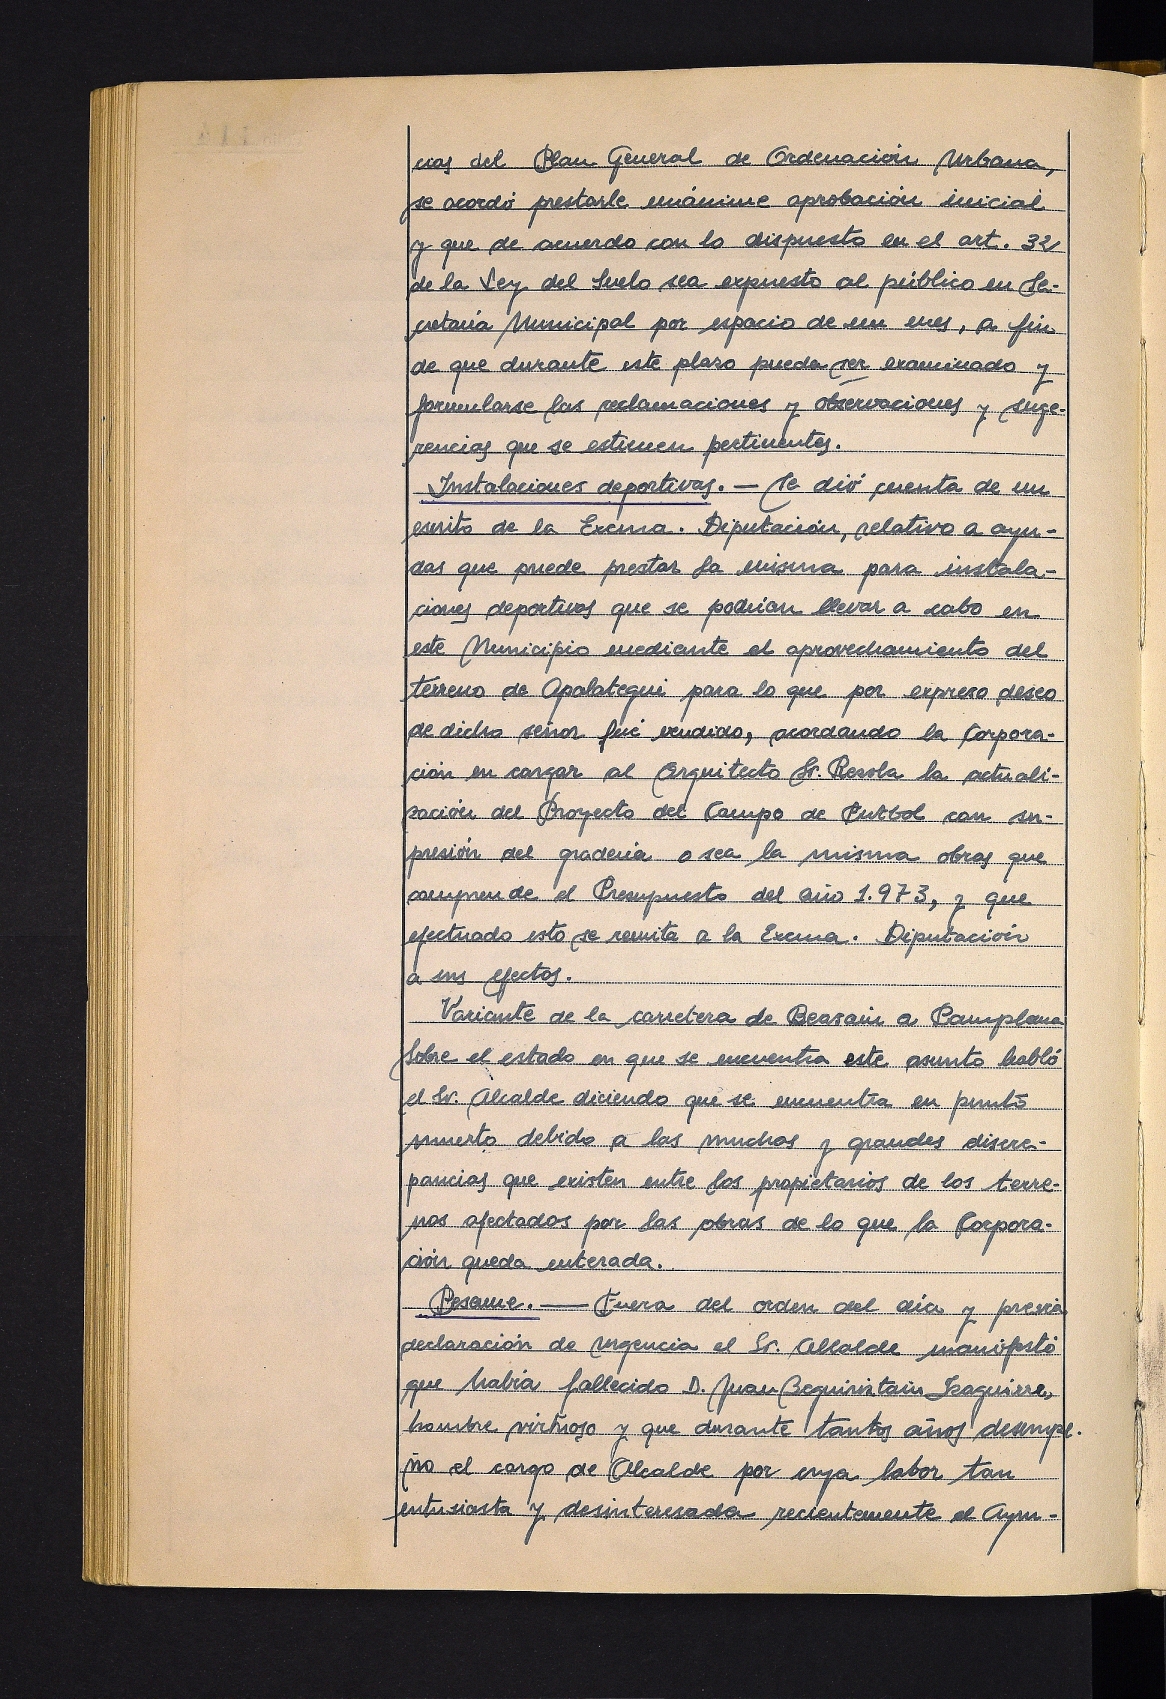 cias del Plan General de Ordenación Urbana,
se acordó prestarle unánime aprobación inicial
y que de acuerdo con lo dispuesto en el art. 32
de la Ley del Suelo sea expuesto al público en Se-
cretaría Municipal por espacio de un mes, a fin
de que durante este plazo pueda ser examinado y
formularse las reclamaciones y observaciones y suge-
rencias que se estimen pertinentes.
Instalaciones deportivas. — Se dió cuenta de un
escrito de la Excma. Diputación, relativo a ayu-
das que puede prestar la misma para instala-
ciones deportivas que se podrian llevar a cabo en
este Municipio mediante el aprovechamiento del
terreno de Apalategui para lo que por expreso deseo
de dicho señor fué vendido, acordando la Corpora-
ción en cargar al Arquitecto Sr. Rezola la actuali-
zación del Proyecto del Campo de Futbol con su-
presión del graderia o sea la misma obras que
compren de el Presupuesto del año 1.973, y que
efectuado esto se remita a la Excma. Diputación
a sus efectos.
Variante de la carretera de Beasain a Pamplona
Sobre el estado en que se encuentra este asunto habló
el Sr. Alcalde diciendo que se encuentra en punto
muerto debido a las muchas y grandes discre-
pancias que existen entre los propietarios de los terre-
nos afectados por las obras de lo que la Corpora-
ción queda enterada.
Pesame. — Fuera del orden del día y previa
declaración de urgencia el Sr. Alcalde manifestó
que había fallecido D. Juan Beguiristain Izaguirre,
hombre virtuoso y que durante tantos años desempe-
ño el cargo de Alcalde por cuya labor tan
entusiasta y desinteresada recientemente el Ayun-